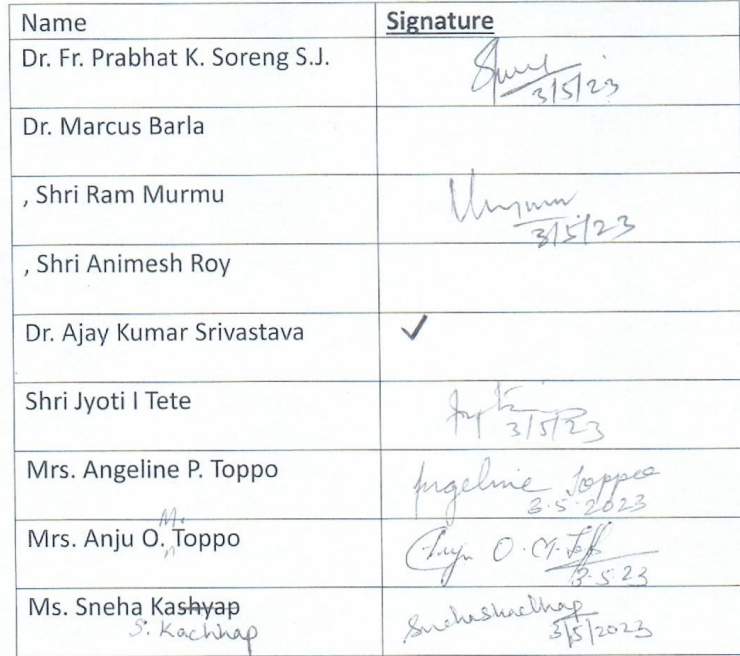 Name Signature
Dr. Fr. Prabhat K. Soreng S.J.
3/5/23
Dr. Marcus Barla
, Shri Ram Murmu
3/5/23
, Shri Animesh Roy
Dr. Ajay Kumar Srivastava ✓
Shri Jyoti I Tete
3/5/23
Mrs. Angeline P. Toppo Angeline Toppo
3.5.2023
M.
Mrs. Anju O. Toppo Anju O. M. Toppo
3.5.23
Ms. Sneha Kashyap
S. Kachhap
3/5/2023